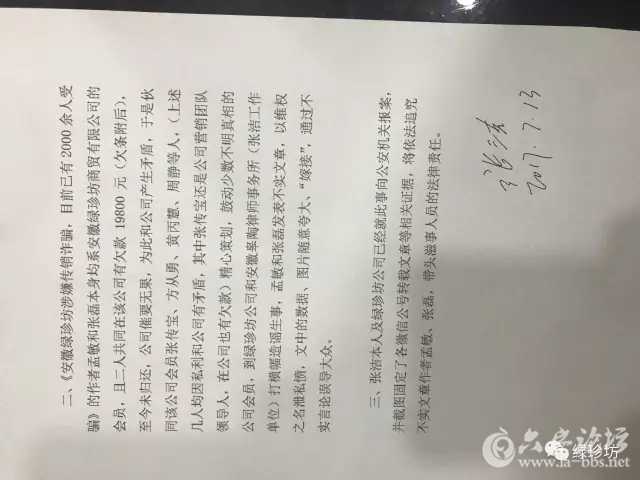 二、《安徽绿珍坊涉嫌传销诈骗，目前已有 2000 余人受
骗》的作者孟敏和张磊本身均系安徽绿珍坊商贸有限公司的
会员，且二人共同在该公司有欠款 19800 元（欠条附后），
至今未归还，公司催要无果，为此和公司产生矛盾，于是伙
同该公司会员张传宝、方从勇、黄丙慧、周静等人，（上述
几人均因私利和公司有矛盾，其中张传宝还是公司营销团队
领导人，在公司也有欠款）精心策划，鼓动少数不明真相的
公司会员，到绿珍坊公司和安徽皋陶律师事务所（张洁工作
单位）打横幅造谣生事，孟敏和张磊发表不实文章，以维权
之名泄私愤，文中的数据、图片随意夸大、“嫁接”，通过不
实言论误导大众。
三、张洁本人及绿珍坊公司已经就此事向公安机关报案，
并截图固定了各微信公号转载文章等相关证据，将依法追究
不实文章作者孟敏、张磊，带头滋事人员的法律责任。
张洁
2017.7.13
六安论坛
www.la-bbs.net
绿珍坊